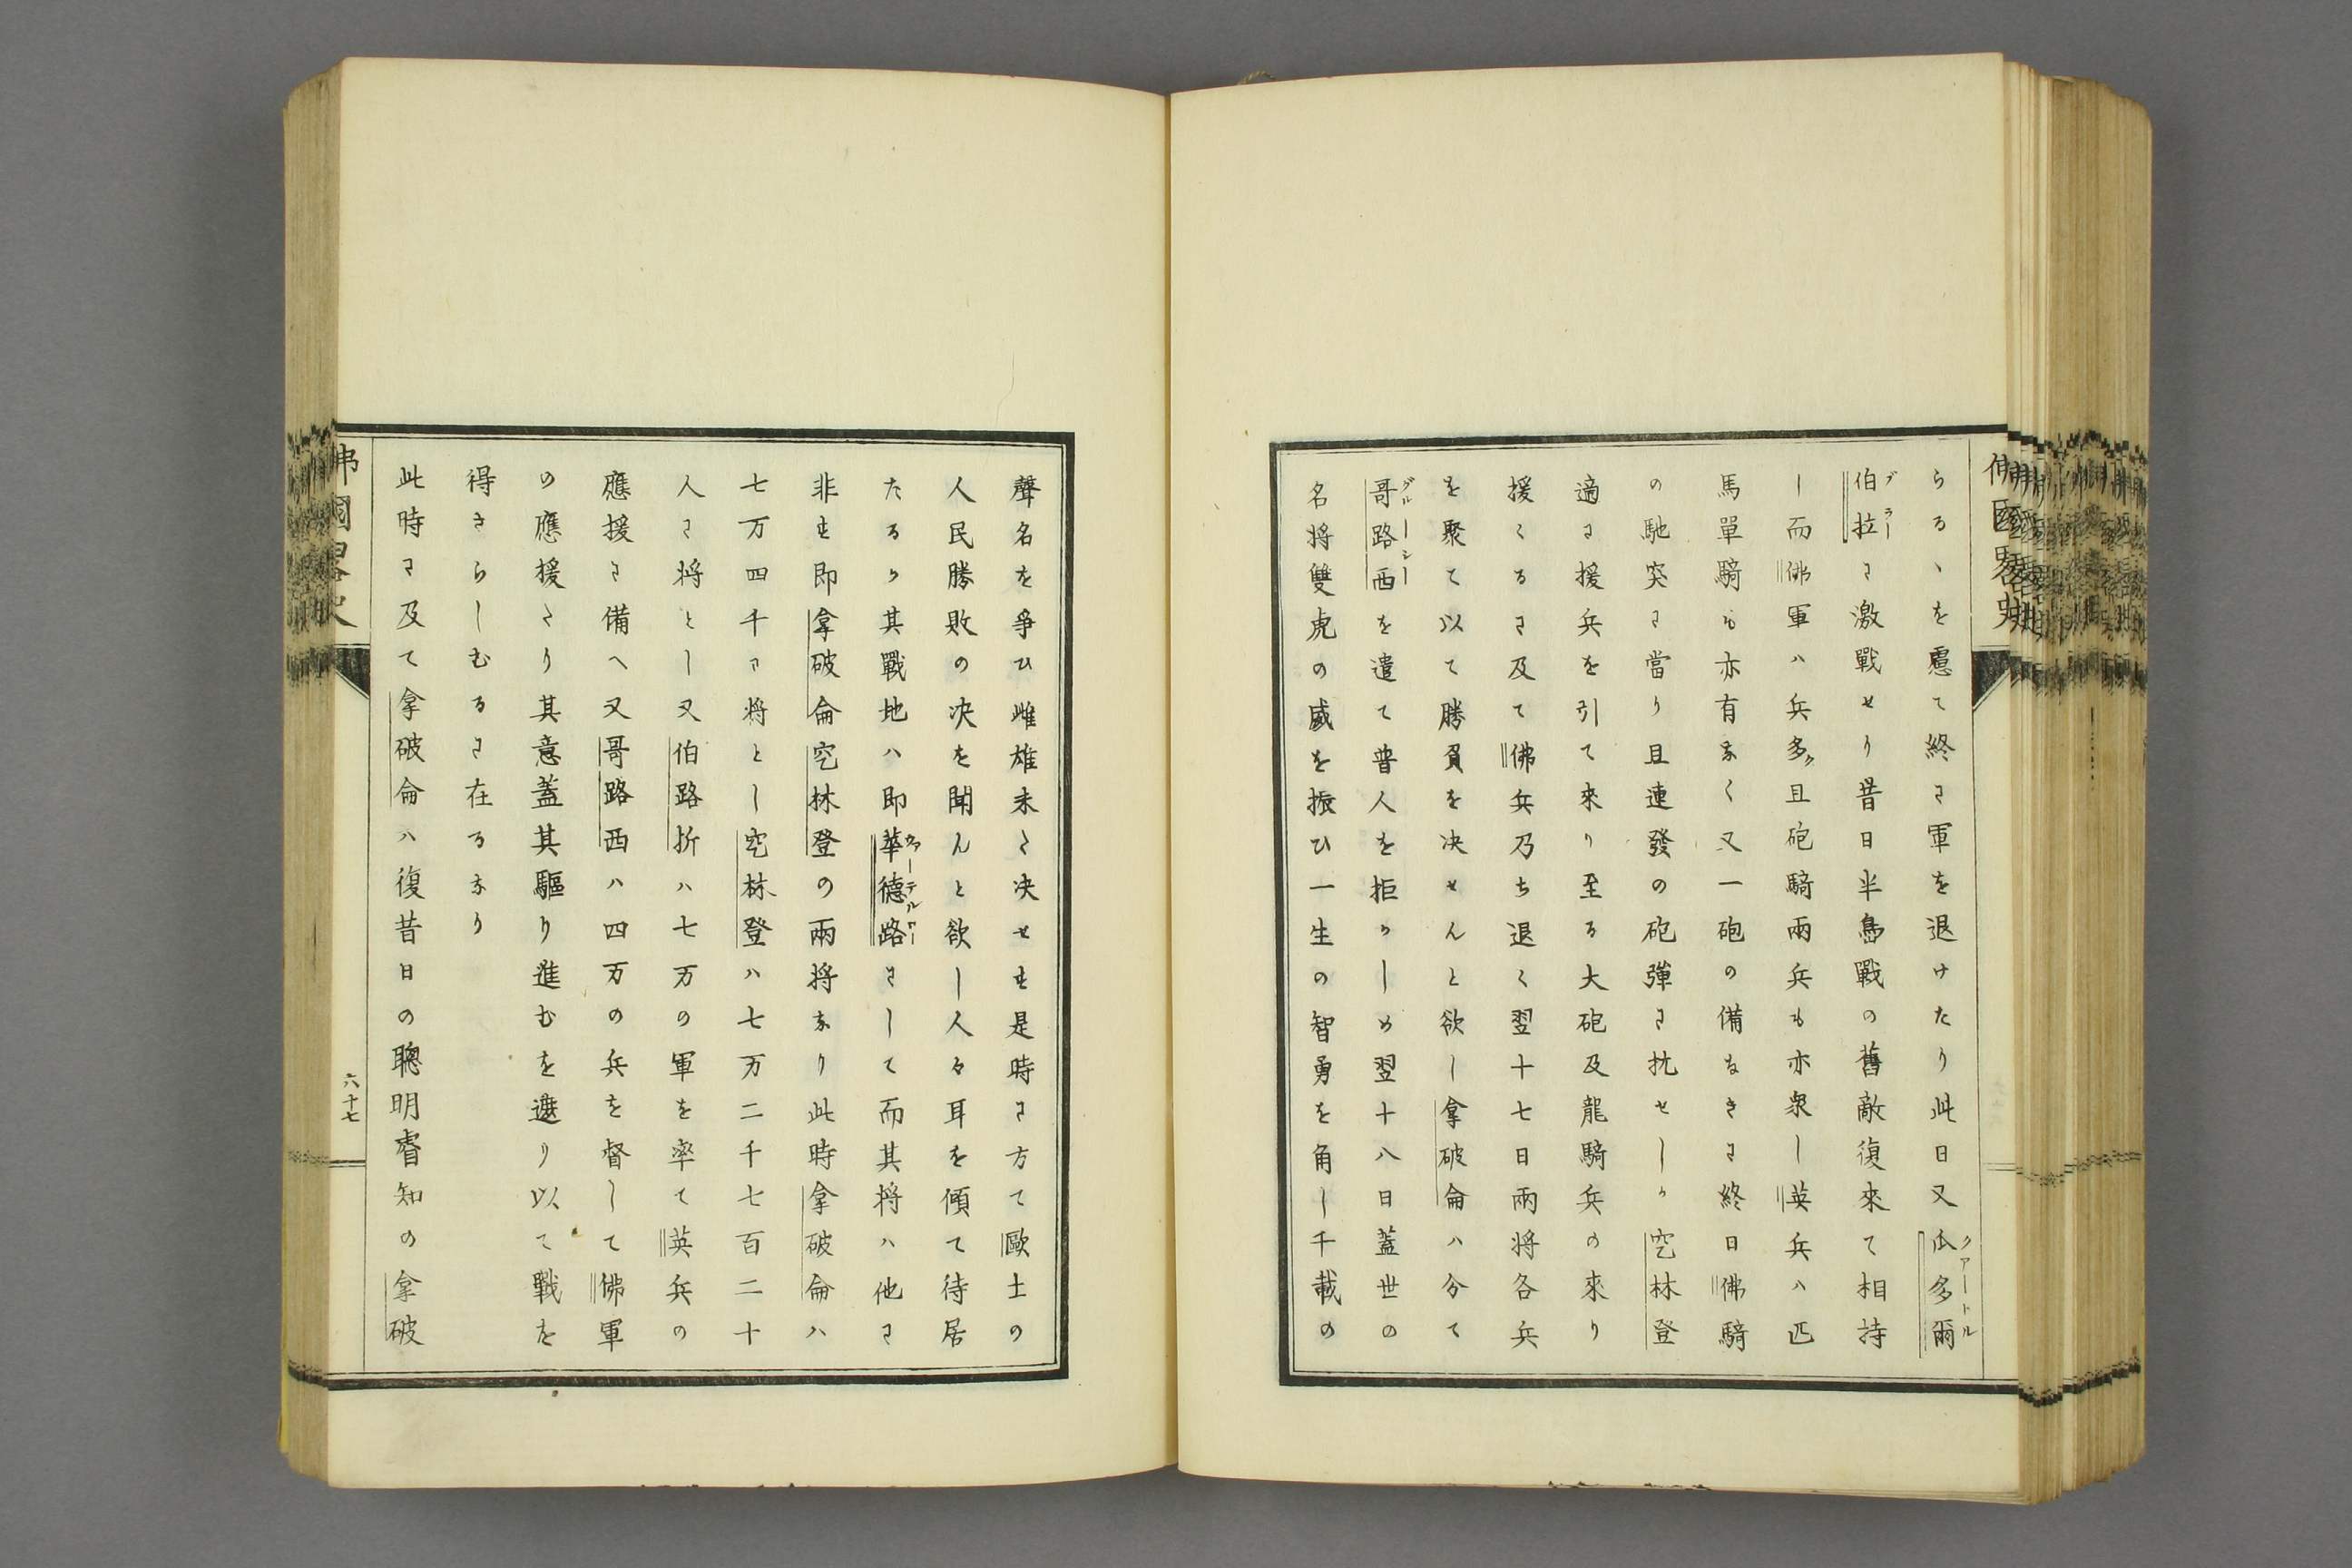 らるゝを慮て終に軍を退けたり此日又瓜多爾
クアートル
伯拉に激戰せり昔日半島戰の舊敵復來て相持
ブラー
し而佛軍ハ兵多且砲騎兩兵も亦衆し英兵ハ匹
馬單騎も亦有なく又一砲の備なきに終日佛騎
の馳突に當り且連發の砲彈に抗せしか空林登
適に援兵を引て來り至る大砲及龍騎兵の來り
援くるに及て佛兵乃ち退く翌十七日兩将各兵
を聚て以て勝負を决せんと欲し拿破侖ハ分て
哥路西を遣て普人を拒かしめ翌十八日蓋世の
グルーシー
名将雙虎の威を振ひ一生の智勇を角し千載の
聲名を爭ひ雌雄未た决せも是時に方て歐土の
人民勝敗の决を聞んと欲し人々耳を傾て待居
たるか其戰地ハ即華德路にして而其将ハ他に
ウァーテルロー
非も即拿破侖空林登の兩将なり此時拿破侖ハ
七万四千に将とし空林登ハ七万二千七百二十
人に将とし又伯路折ハ七万の軍を率て英兵の
應援に備へ又哥路西ハ四万の兵を督して佛軍
の應援たり其意蓋其驅り進むを遮り以て戰を
得さらしむるに在るなり
此時に及て拿破侖ハ復昔日の聰明睿知の拿破
佛國畧史
六十七